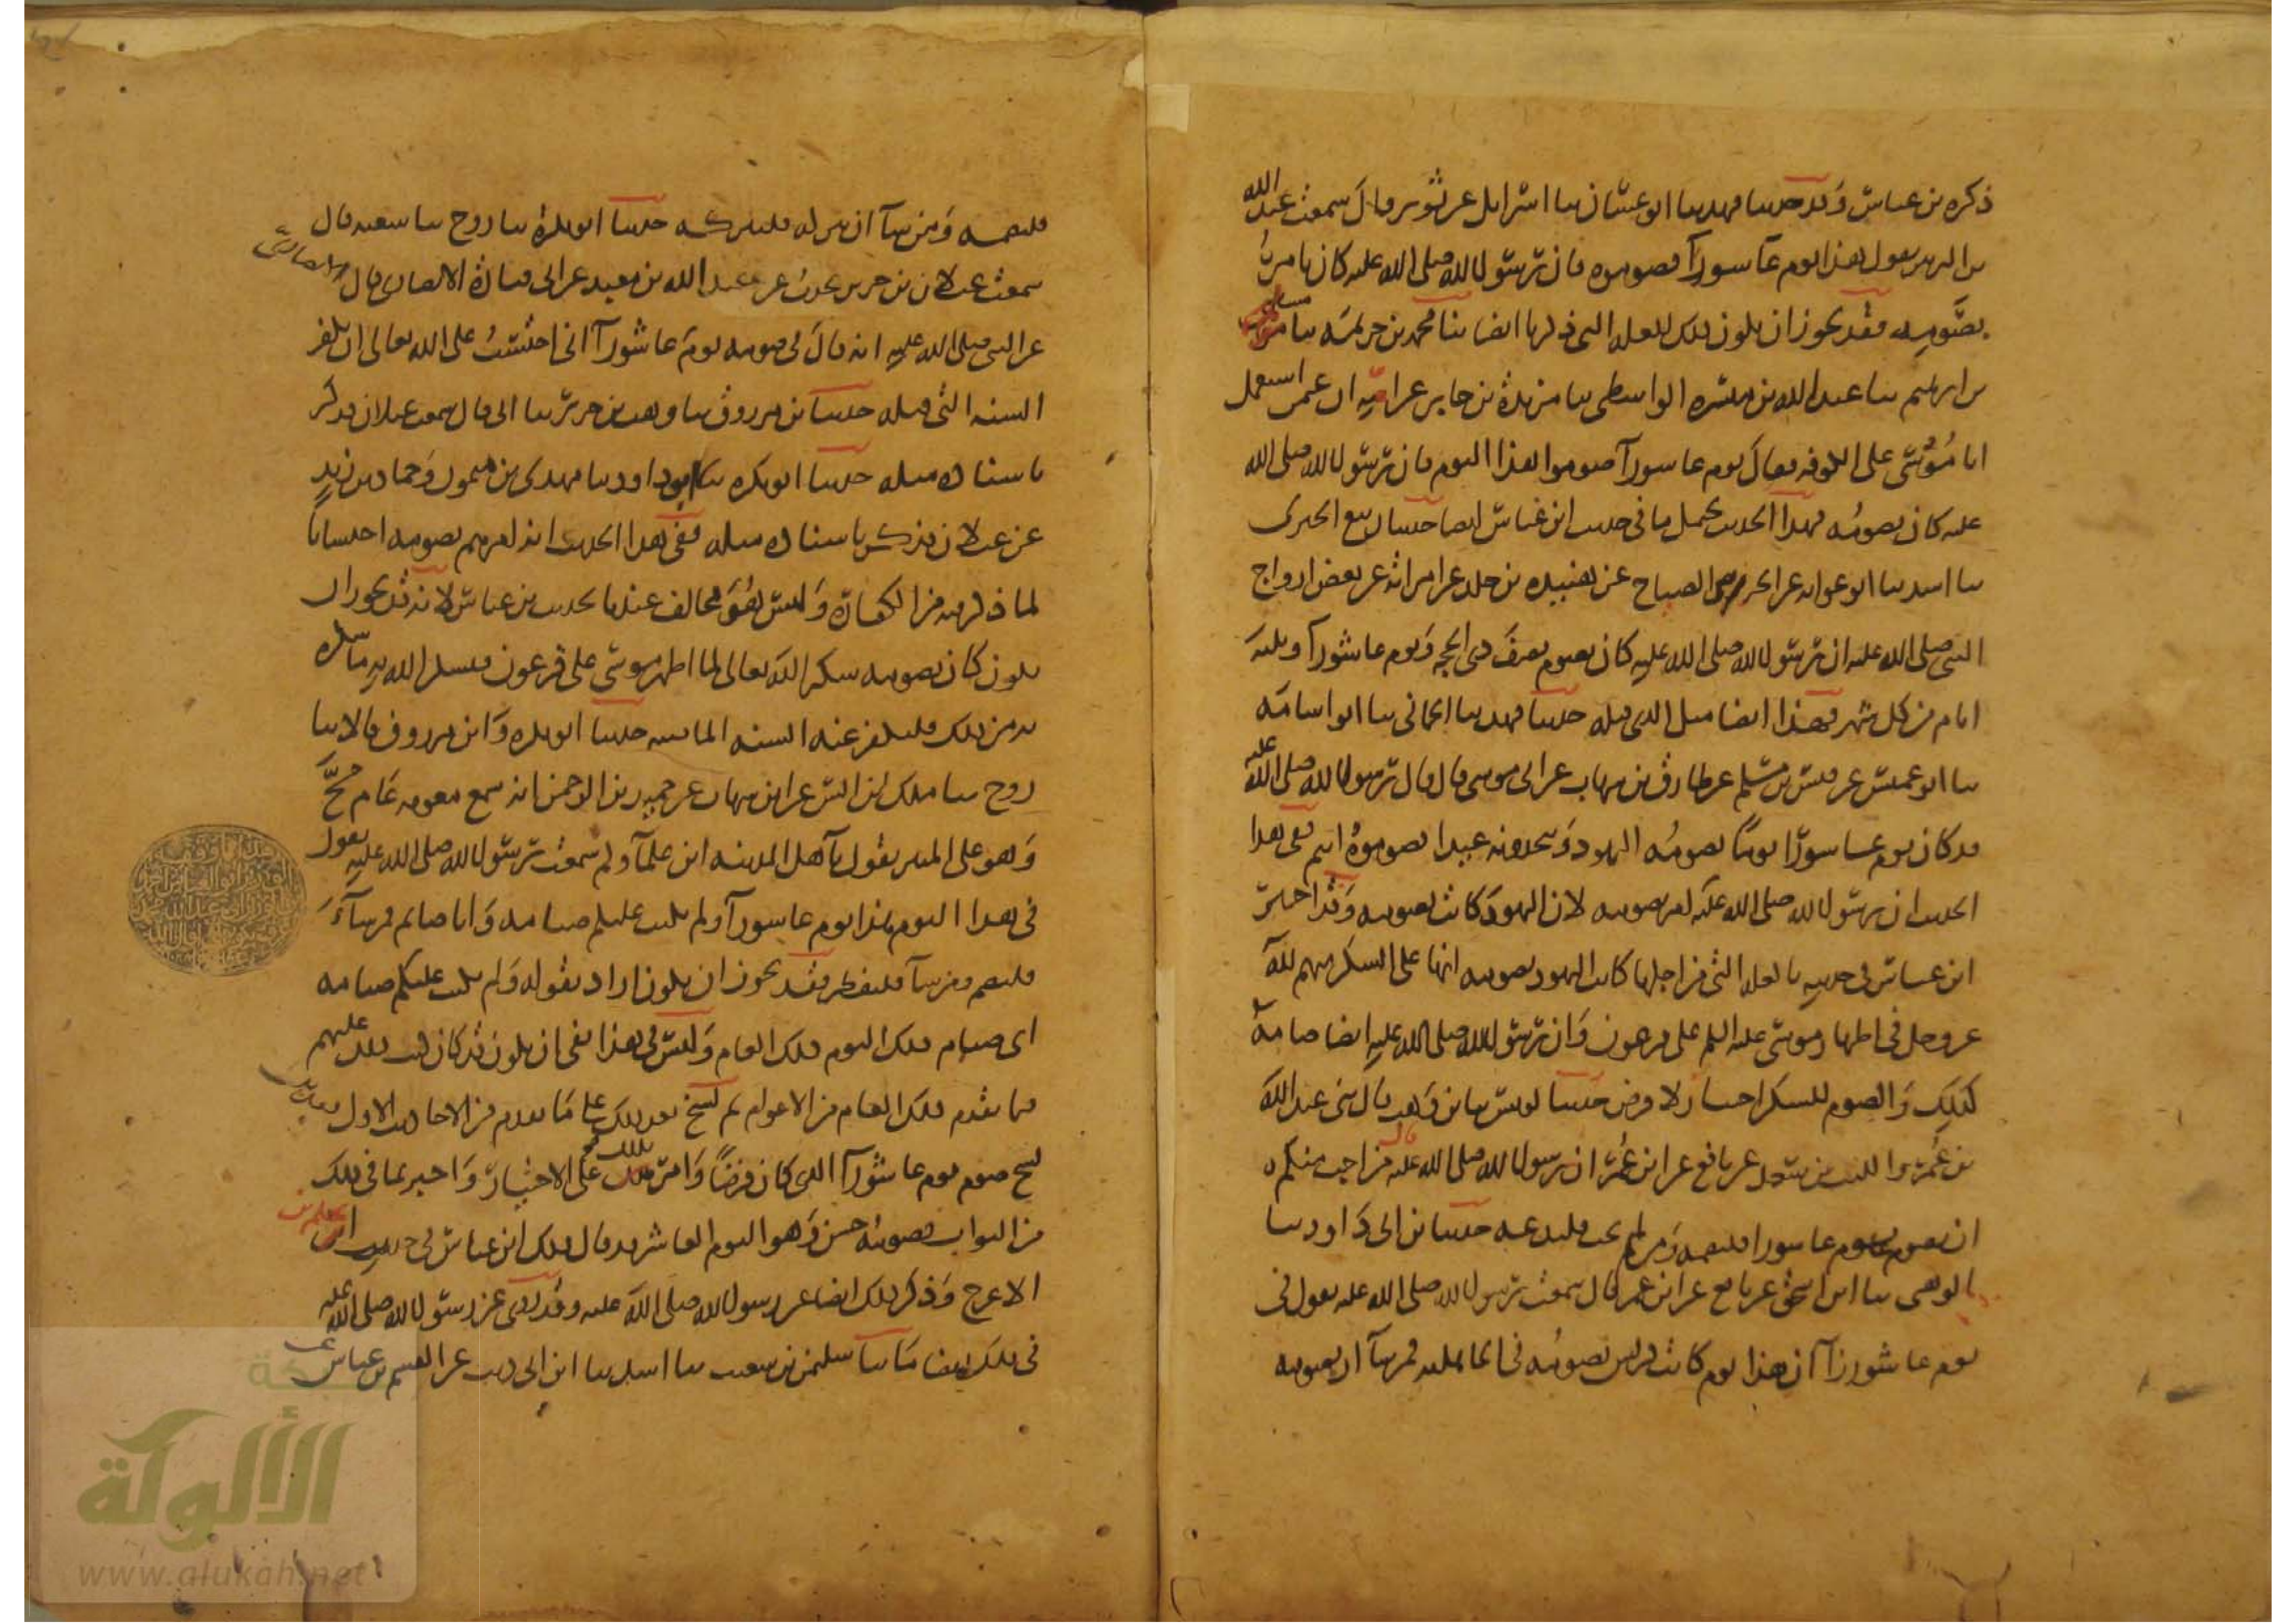 ذكره بن عباس وقد حدثنا فهد ثنا ابو غسان ثنا اسرائيل عن ثوير قال سمعت عبد الله
بن الزبير يقول هذا يوم عاشورآ فصوموه فان رسول الله صلى الله عليه كان يامر
بصومه فقد يجوز ان يكون ذلك للعله التي ذكرنا ايضا ثنا محمد بن خزيمة ثنا مسلم
بن ابرهيم ثنا عبد الله بن ميسره الواسطي ثنا مزيدة بن جابر عن امه ان عمر استعمل
ابا موسى على الكوفه فقال يوم عاشورآ صوموا هذا اليوم فان رسول الله صلى الله
عليه كان يصومه فهذا الحديث يحتمل ما في حديث ابن عباس ايضا حدثنا ربيع الجيزى
ثنا اسد ثنا ابو عوانه عن الحر بن الصباح عن هنيدة بن خلد عن امراته عن بعض ازواج
النبي صلى الله عليه ان رسول الله صلى الله عليه كان يصوم تسع ذى الحجه ويوم عاشورآ وثلثة
ايام من كل شهر فهذا ايضا مثل الذي قبله حدثنا فهد ثنا الحماني ثنا ابو اسامه
ثنا ابو عميس عن قيس بن مسلم عن طارق بن شهاب عن ابي موسى قال قال رسول الله صلى الله عليه
قد كان يوم عاشورآ يوما يصومه اليهود وتتخذونه عيدا فصوموه انتم ففي هذا
الحديث ان رسول الله صلى الله عليه امر بصومه لان اليهود كانت تصومه وقد اخبر
ابن عباس في حديثه بالعله التي من اجلها كانت اليهود تصومه انها على الشكر منهم لله
عز وجل في اظهار موسى عليه السلم على فرعون وان رسول الله صلى الله عليه ايضا صامه
كذلك والصوم للشكر اختيار لا فرض حدثنا يونس ثنا بن وهب قال ثنى عبد الله
بن عمر والليث بن سعد عن نافع عن ابن عمر ان رسول الله صلى الله عليه قال من احب منكم
ان يصوم يوم عاشورا فليصمه ومن لم يحب فليدعه حدثنا بن ابي داود ثنا
الوهبي ثنا ابن اسحق عن نافع عن ابن عمر قال سمعت رسول الله صلى الله عليه يقول في
يوم عاشورآ ان هذا يوم كانت قريش تصومه في الجاهليه فمن شآ ان يصومه
فليصمه ومن شآ ان يتركه فليتركه حدثنا ابو بكرة ثنا روح ثنا شعبه قال
سمعت غيلان بن جرير يحدث عن عبد الله بن معبد عن ابي قتادة الانصارى قال
عن النبي صلى الله عليه انه قال في صومه يوم عاشورآ اني احتسب على الله تعالى ان يكفر
السنه التي قبله حدثنا بن مرزوق ثنا وهب بن جرير ثنا ابي قال سمعت غيلان فذكر
باسناده مثله حدثنا ابو بكره ثنا ابو داود ثنا مهدى بن ميمون وحماد بن زيد
عن غيلان فذكر باسناده مثله ففي هذا الحديث انه امرهم بصومه احتسابا
لما ذكر فيه من الكفارة وليس هو مخالف عندنا لحديث بن عباس لانه قد يجوز ان
يكون كان يصومه شكرا لله تعالى لما اظهر موسى على فرعون فيشكر الله به ما شكره
به من ذلك فيكفر عنه السنه الماضيه حدثنا ابو بكره وابن مرزوق قالا ثنا
روح ثنا ملك بن انس عن ابن شهاب عن حميد بن عبد الرحمن انه سمع معويه عام حج
وهو على المنبر يقول يآ اهل المدينه اين علمآوكم سمعت رسول الله صلى الله عليه يقول
في هذا اليوم هذا يوم عاشورآ ولم يكتب عليكم صيامه وانا صايم فمن شآء
فليصم ومن شآ فليفطر فقد يجوز ان يكون اراد بقوله ولم يكتب عليكم صيامه
اى صيام ذلك اليوم ذلك العام وليس في هذا نفي ان يكون قد كان كتب ذلك عليهم
فيما تقدم ذلك العام من الاعوام ثم نسخ بعد ذلك على ما تقدم من الاحاديث الاول
نسخ صوم يوم عاشورآ الذى كان فرضا وامر بذلك على الاختيار واخبر بما في ذلك
من الثواب فصومه حسن وهو اليوم العاشر قد قال ذلك ابن عباس في حديث
الاعرج وذكر ذلك ايضا عن رسول الله صلى الله عليه وقد روى عن رسول الله صلى الله عليه
في ذلك ايضا ما ثنا سليمن بن شعيب ثنا اسد ثنا ابن ابي ذيب عن القسم بن عباس
شبكة
الألوكة
www.alukah.net